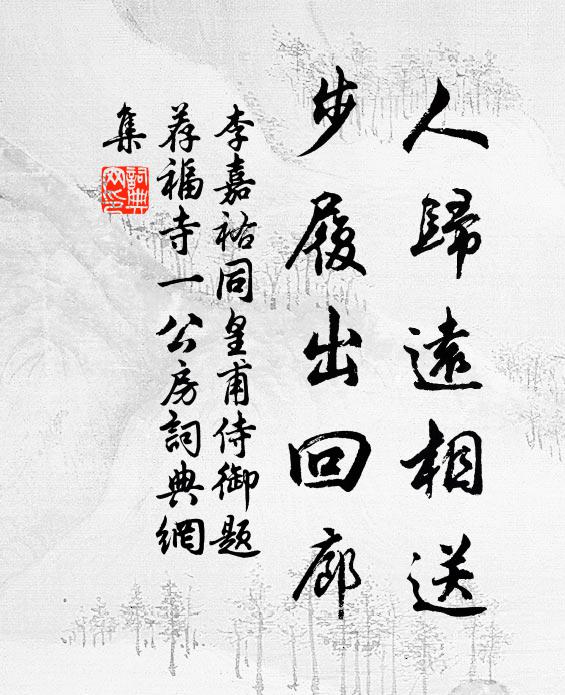 人歸遠相送
步履出回廊
李嘉祐同皇甫侍御題
荐福寺一公房詞典網
集
詞典网印